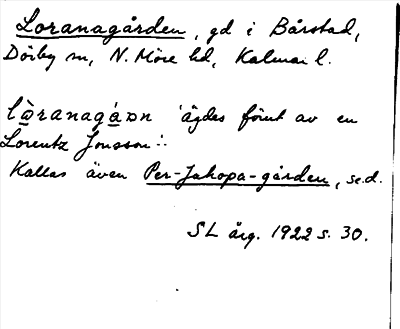 Loranagården, gd i Bårstad,
Dörby sn, N. Möre hd, Kalmar l.
lò̱ranagá̱ɒn 'ägdes förut av en
Lorentz Jonsson'.
Kallas även Per-Jakopa-gården, se.d.
SL årg. 1922 s. 30.